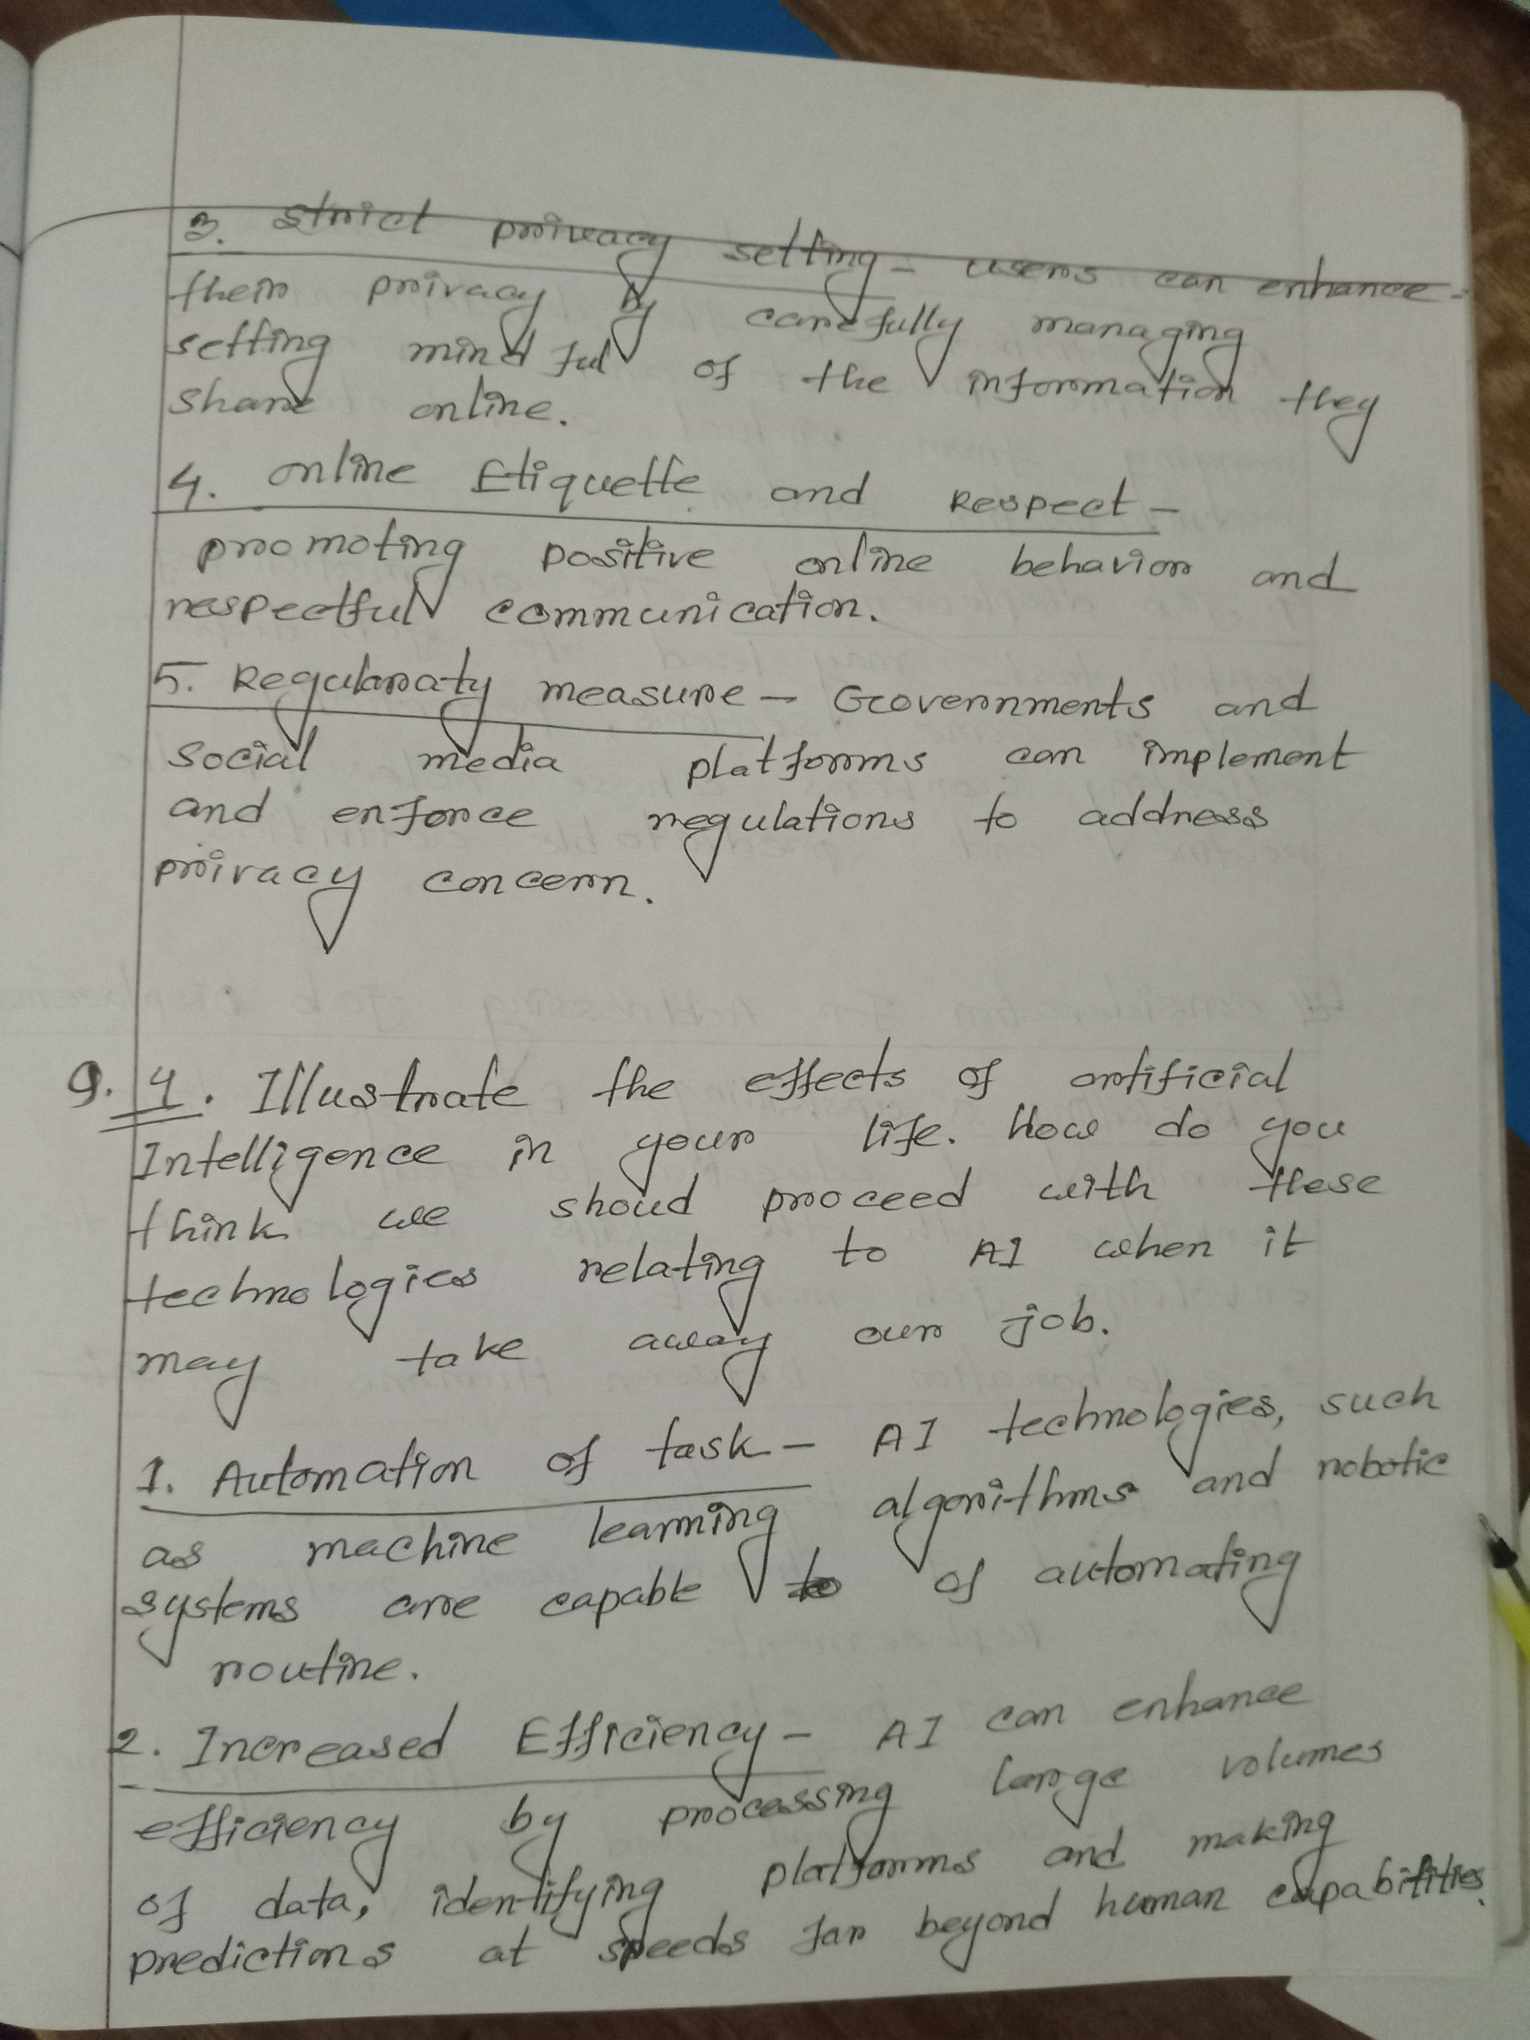 3. Strict privacy setting - users can enhance
their privacy by carefully managing
setting mindful of the information they
share online.
4. online Etiquette and Respect -
promoting positive online behavior and
respectful communication.
5. Regularaty measure - Governments and
social media platforms can implement
and enforce regulations to address
privacy concern.
Q. 4. Illustrate the effects of artificial
Intelligence in your life. How do you
think we shoud proceed with these
technologies relating to AI when it
may take away our job.
1. Automation of task - AI technologies, such
as machine learning algorithms and robotic
systems are capable of automating
routine.
2. Increased Efficiency - AI can enhance
efficiency by processing large volumes
of data, identifying platforms and making
predictions at speeds far beyond human capabilities.